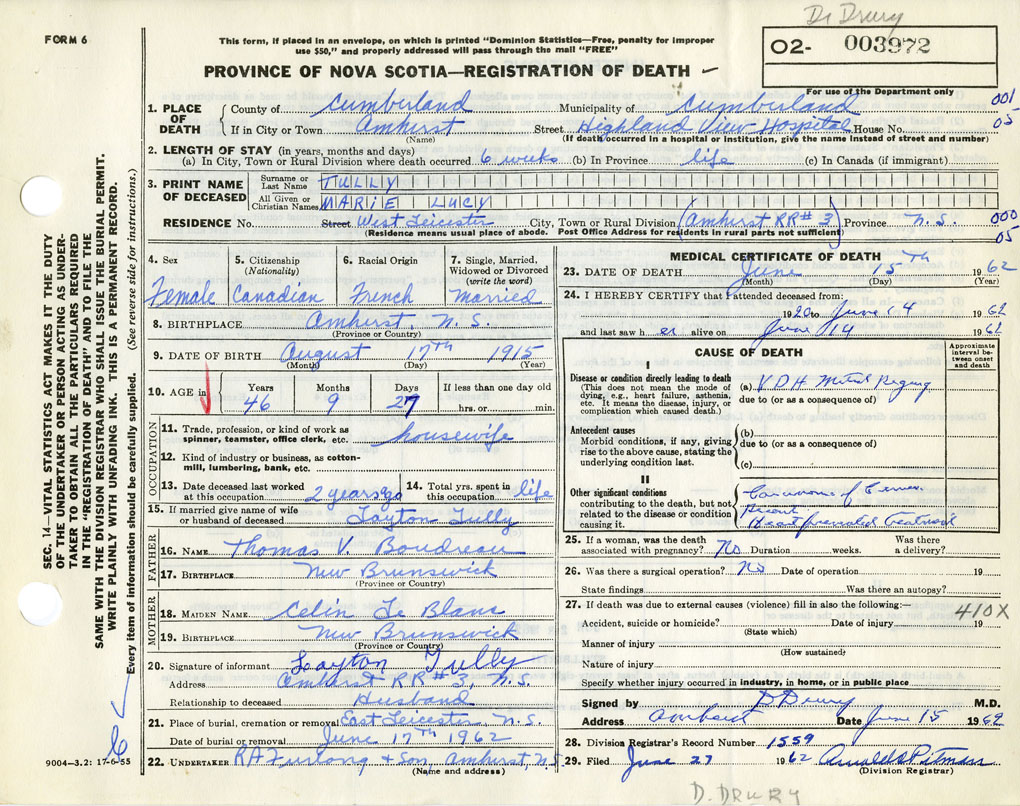 Dr Drury
FORM 6
This form, if placed in an envelope, on which is printed "Dominion Statistics—Free, penalty for improper
use $50," and properly addressed will pass through the mail "FREE"
O2- 003972
PROVINCE OF NOVA SCOTIA—REGISTRATION OF DEATH
For use of the Department only
1. PLACE OF DEATH County of Cumberland Municipality of Cumberland 001
If in City or Town Amherst Street Highland View Hospital House No. 05
(Name) (If death occurred in a hospital or institution, give the name instead of street and number)
2. LENGTH OF STAY (in years, months and days)
(a) In City, Town or Rural Division where death occurred 6 weeks (b) In Province life (c) In Canada (if immigrant)
3. PRINT NAME OF DECEASED Surname or Last Name TULLY
All Given or Christian Names MARIE LUCY
RESIDENCE No. Street West Leicester City, Town or Rural Division (Amherst RR# 3) Province N.S. 000
(Residence means usual place of abode. Post Office Address for residents in rural parts not sufficient) 05
4. Sex Female
5. Citizenship (Nationality) Canadian
6. Racial Origin French
7. Single, Married, Widowed or Divorced (write the word) Married
8. BIRTHPLACE Amherst, N.S.
(Province or Country)
9. DATE OF BIRTH August 17th 1915
(Month) (Day) (Year)
10. AGE in Years Months Days If less than one day old
46 9 27 hrs. or min.
OCCUPATION
11. Trade, profession, or kind of work as spinner, teamster, office clerk, etc. housewife
12. Kind of industry or business, as cotton-mill, lumbering, bank, etc.
13. Date deceased last worked at this occupation 2 years ago 14. Total yrs. spent in this occupation life
15. If married give name of wife or husband of deceased Layton Tully
FATHER
16. NAME Thomas V. Boudreau
17. BIRTHPLACE New Brunswick
(Province or Country)
MOTHER
18. MAIDEN NAME Celin Le Blanc
19. BIRTHPLACE New Brunswick
(Province or Country)
20. Signature of informant Layton Tully
Address Amherst RR # 3, N.S.
Relationship to deceased Husband
21. Place of burial, cremation or removal East Leicester N.S.
Date of burial or removal June 17th 1962
22. UNDERTAKER R A Furlong & Son, Amherst, N.S.
(Name and address)
MEDICAL CERTIFICATE OF DEATH
23. DATE OF DEATH June 15th 1962
(Month) (Day) (Year)
24. I HEREBY CERTIFY that I attended deceased from:
1920 to June 14 1962
and last saw her alive on June 14 1962
CAUSE OF DEATH
Approximate interval between onset and death
I
Disease or condition directly leading to death
(This does not mean the mode of dying, e.g., heart failure, asthenia, etc. It means the disease, injury, or complication which caused death.)
(a) V.D.H Mitral Regurg
due to (or as a consequence of)
Antecedent causes
Morbid conditions, if any, giving rise to the above cause, stating the underlying condition last.
(b)
due to (or as a consequence of)
(c)
II
Other significant conditions
contributing to the death, but not related to the disease or condition causing it.
Carcinoma of Cervix
Heart prevented treatment
25. If a woman, was the death associated with pregnancy? No Duration weeks. Was there a delivery?
26. Was there a surgical operation? No Date of operation 19
State findings Was there an autopsy?
27. If death was due to external causes (violence) fill in also the following:— 410X
Accident, suicide or homicide? Date of injury 19
(State which)
Manner of injury
(How sustained)
Nature of injury
Specify whether injury occurred in industry, in home, or in public place
Signed by D Drury M.D.
Address Amherst Date June 15 1962
28. Division Registrar's Record Number 1559
29. Filed June 27 1962 Arnold S Pitman
(Division Registrar)
D. DRURY
SEC. 14—VITAL STATISTICS ACT MAKES IT THE DUTY
OF THE UNDERTAKER OR PERSON ACTING AS UNDER-
TAKER TO OBTAIN ALL THE PARTICULARS REQUIRED
IN THE "REGISTRATION OF DEATH" AND TO FILE THE
SAME WITH THE DIVISION REGISTRAR WHO SHALL ISSUE THE BURIAL PERMIT.
WRITE PLAINLY WITH UNFADING INK. THIS IS A PERMANENT RECORD.
Every item of information should be carefully supplied. (See reverse side for instructions.)
9004-3.2: 17-6-55